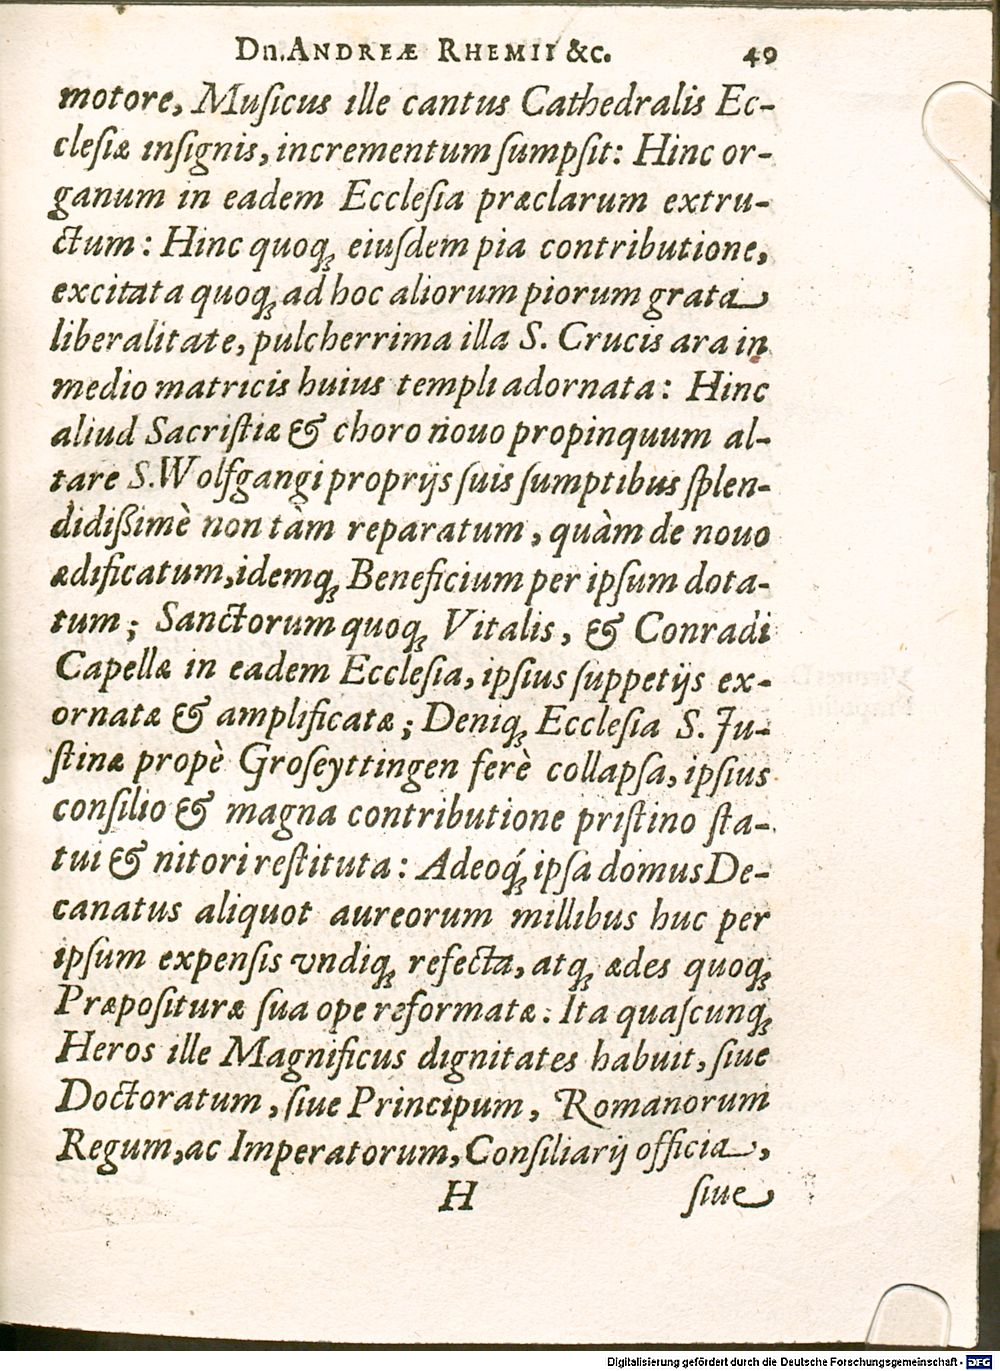 Dn. ANDREÆ RHEMII &c. 49
motore, Muſicus ille cantus Cathedralis Ec-
cleſiæ inſignis, incrementum ſumpſit: Hinc or-
ganum in eadem Eccleſia præclarum extru-
ctum: Hinc quoq; eiuſdem pia contributione,
excitata quoq; ad hoc aliorum piorum grata
liberalitate, pulcherrima illa S. Crucis ara in
medio matricis huius templi adornata: Hinc
aliud Sacriſtiæ & choro nouo propinquum al-
tare S. Wolfgangi proprijs ſuis ſumptibus ſplen-
didißimè non tàm reparatum, quàm de nouo
ædificatum, idemq; Beneficium per ipſum dota-
tum; Sanctorum quoq; Vitalis, & Conradi
Capellæ in eadem Eccleſia, ipſius ſuppetijs ex-
ornatæ & amplificatæ; Deniq; Eccleſia S. Ju-
ſtinæ propè Groſeyttingen ferè collapſa, ipſius
conſilio & magna contributione priſtino ſta-
tui & nitori reſtituta: Adeoq́; ipſa domus De-
canatus aliquot aureorum millibus huc per
ipſum expenſis vndiq; refecta, atq; ædes quoq;
Præpoſituræ ſua ope reformatæ. Ita quaſcunq;
Heros ille Magnificus dignitates habuit, ſiue
Doctoratum, ſiue Principum, Romanorum
Regum, ac Imperatorum, Conſiliarij officia,
H ſiue
Digitalisierung gefördert durch die Deutsche Forschungsgemeinschaft - DFG